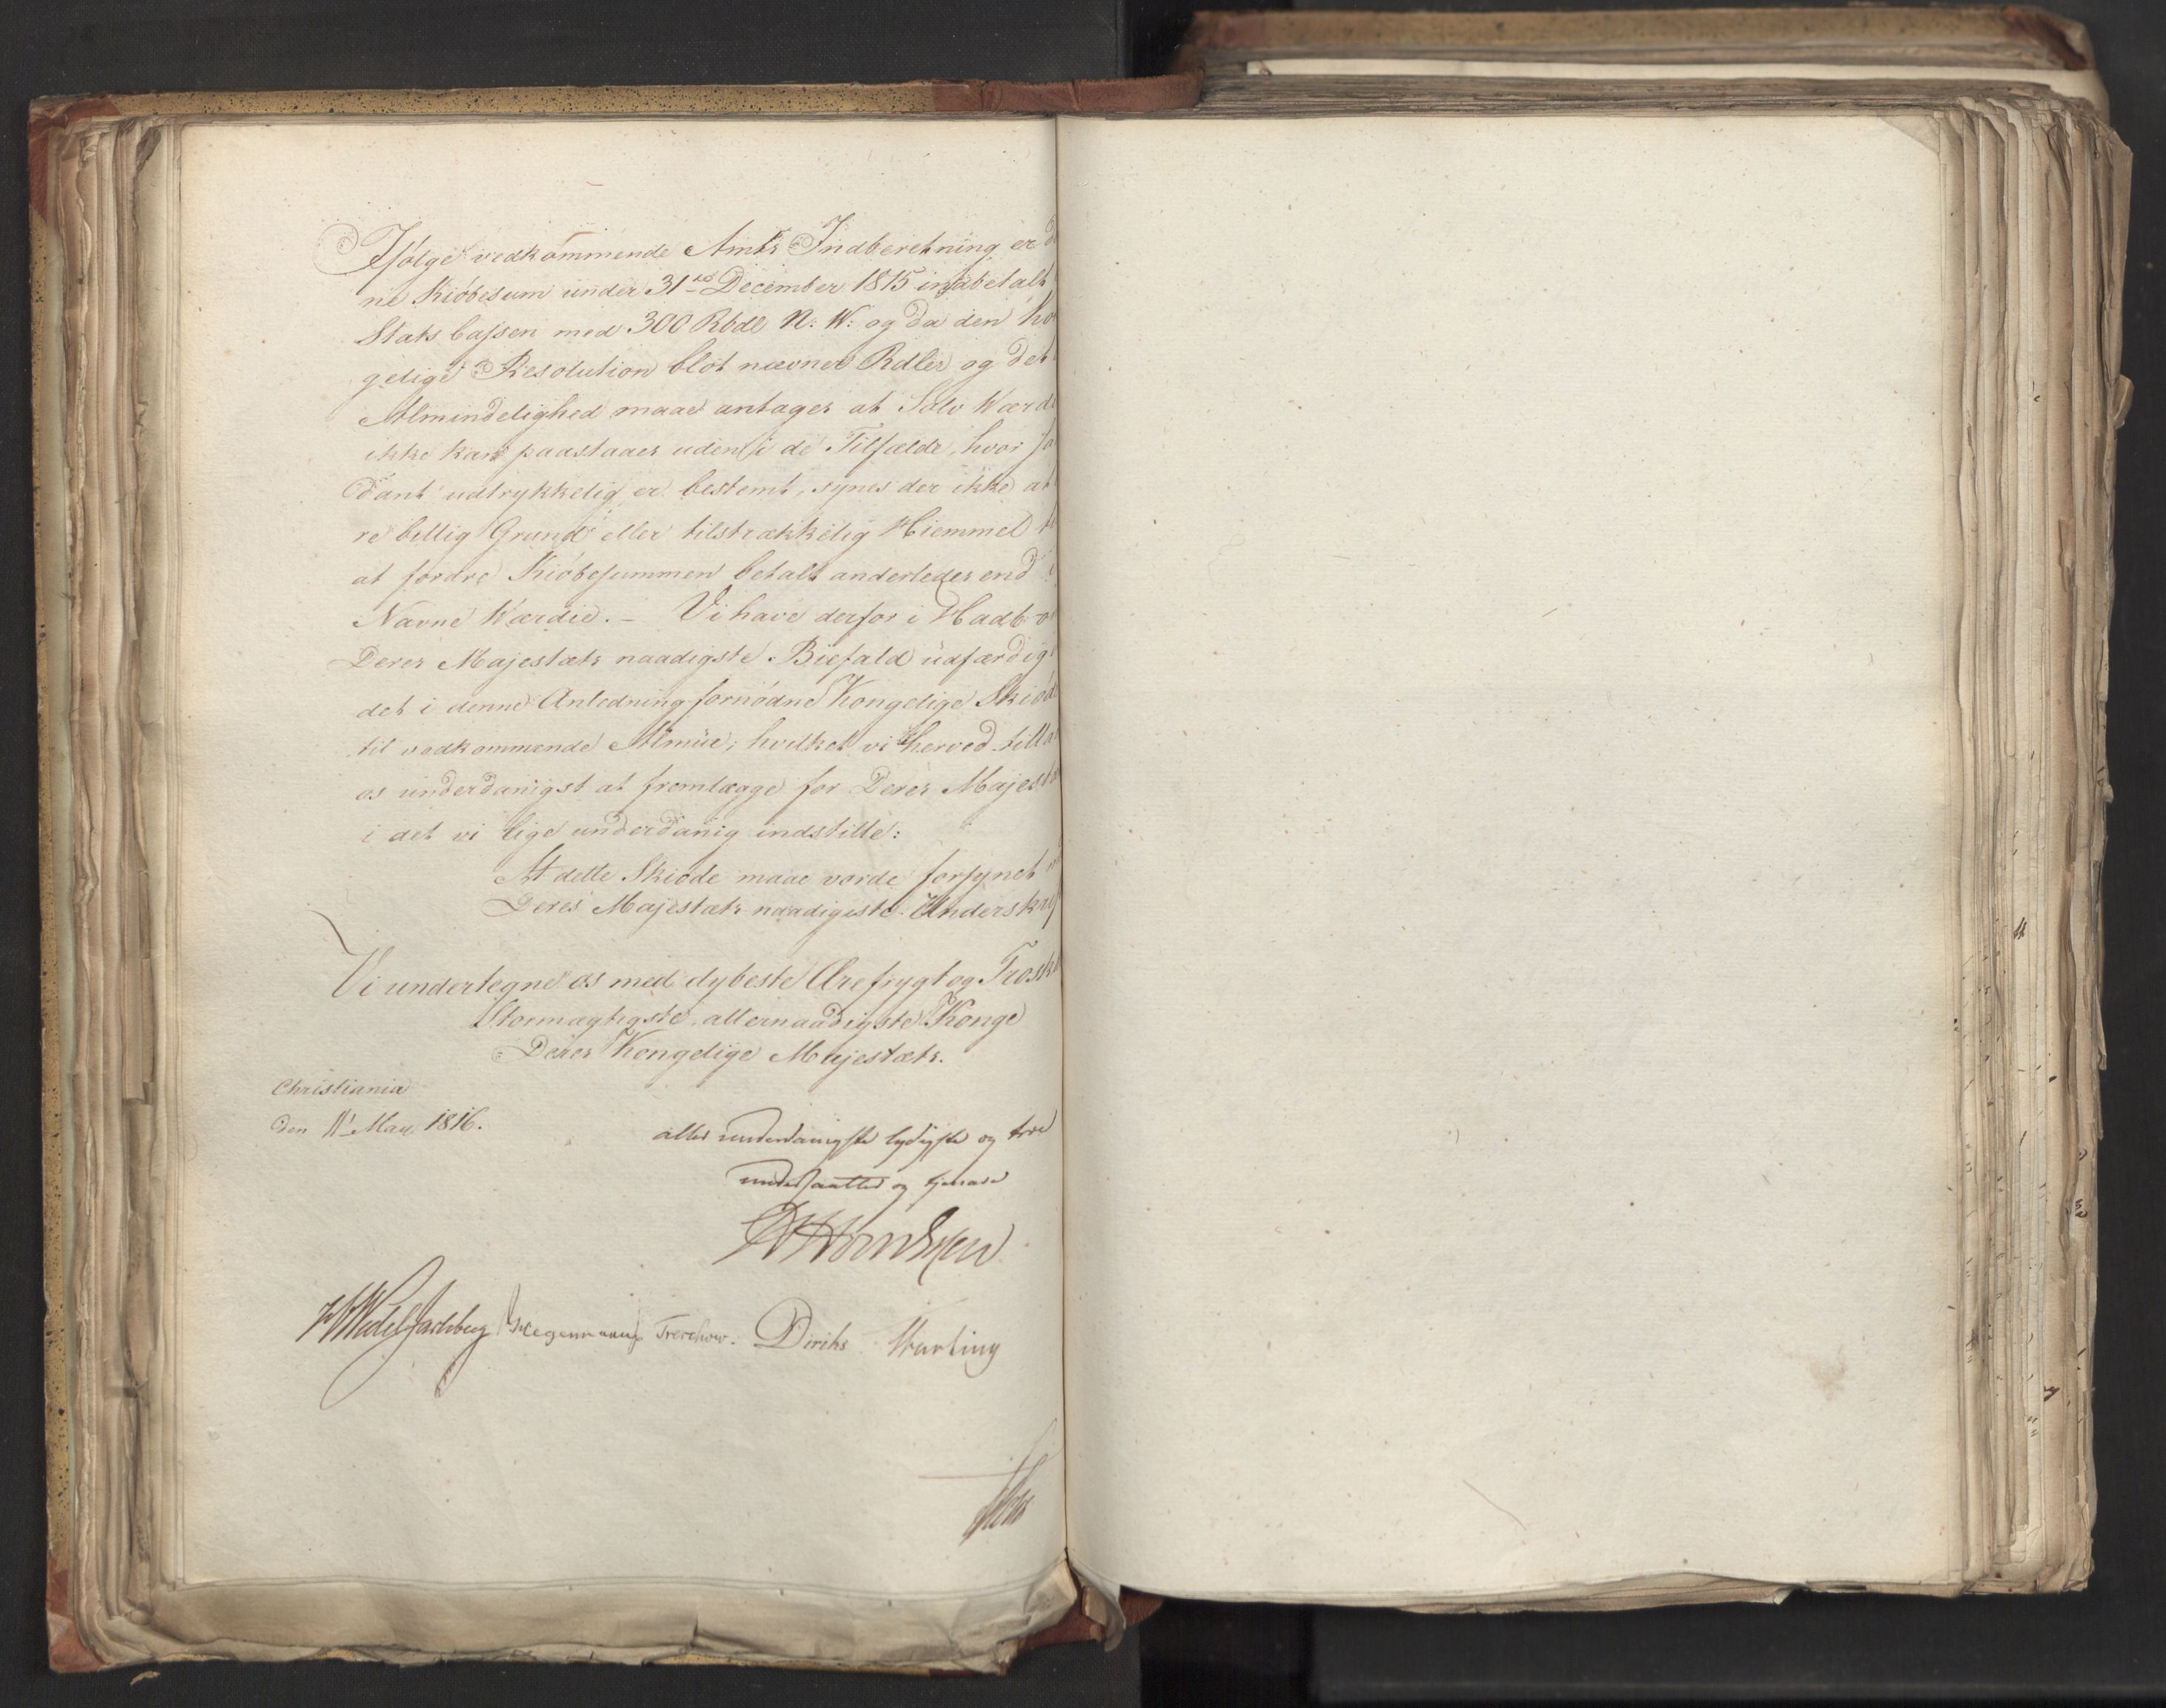 Ifølge vedkommende Amts Indberetning er d
ne Kiöbesum under 31te December 1815 indbetalt
Stats Cassen med 300 Rbdl N: W: og da den ko
gelige Resolution blot nævner Rdler og det
Almindelighed maae antages at Sølv Værdi
ikke kan paastaaes uden i de Tilfælde, hvor sa
dant udtrykkelig er bestemt, synes der ikke at
re billig Grund eller tilstrækkelig Hiemmel t
at fordre Kiöbesummen betalt anderledes end i
Navne Værdie. – Vi have derfor i Haab o
Deres Majestæts naadigste Biefald üdfærdig
det i denne Anledning fornødne Kongelige Skiöd
til vedkommende Almüe, hvilket vi herved tilla
os ünderdanigst at fremlægge for Deres Majestæ
i det vi lige underdanig indstille:
At dette Skiöde maae vorde forsynet m
Deres Majestæts naadigste Underskrif
Vi undertegne os med dybeste Ærefrygt og Trosk
Stormægtigste, allernaadigste Konge
Deres Kongelige Majestæts.
Christiania
den 11te May 1816.
aller underdanigste lydigste og troe
undersaatter og tjenere
HWedel Jarlsberg Hegermann Treschow. Diriks Krarting